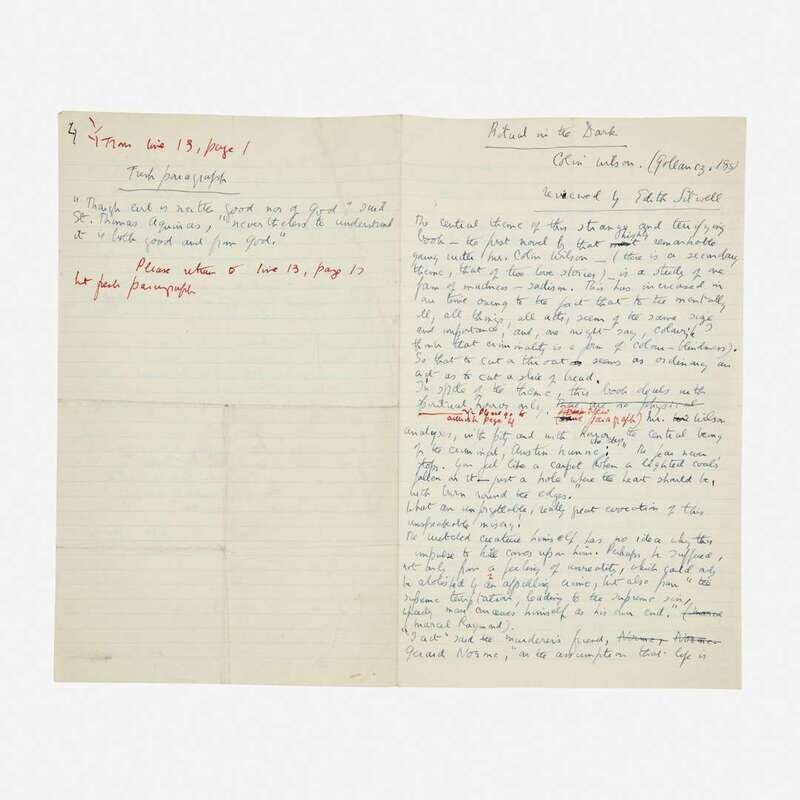 4
From line 13, page 1
Fresh paragraph
"Though evil is neither good nor of God" said
St. Thomas Aquinas, "nevertheless to understand
it is both good and from God."
Please return to line 13, page 1
but fresh paragraph
Ritual in the Dark
Colin Wilson. (Gollancz,
reviewed by Edith Sitwell
The central theme of this strange and terrifying
book – the first novel by that highly remarkable
young writer Mr. Colin Wilson – (there is a secondary
theme, that of two love stories) – is a study of one
form of madness – sadism. This has increased in
our time owing to the fact that to the mentally
ill, all things, all acts, seem of the same size
and importance, and, one might say, colour (I
think that criminality is a form of colour-blindness).
So that to cut a throat seems as ordinary an
act as to cut a slice of bread.
In spite of the theme, this book deals with
spiritual horror only. There are no physical
Please go to
page 4 (paragraph) Mr. Wilson
analyses, with pity and with horror, the central being
of the criminal, Austin Nunne; he says, "The fear never
stops. You feel like a carpet when a lighted coal's
fallen on it – just a hole where the heart should be,
with burn round the edges."
What an unforgettable, really great evocation of this
unspeakable misery.
The wretched creature himself has no idea why this
impulse to kill comes upon him. Perhaps, he suffered,
not only from a feeling of unreality, which could only
be abolished by an appalling crime, but also from "the
supreme temptation, leading to the supreme sin,
whereby man conceives himself as his own end."
(Marcel Raymond).
"I act" said the murderer's friend, Norme, Norme
Gerard Sorme, "on the assumption that life is